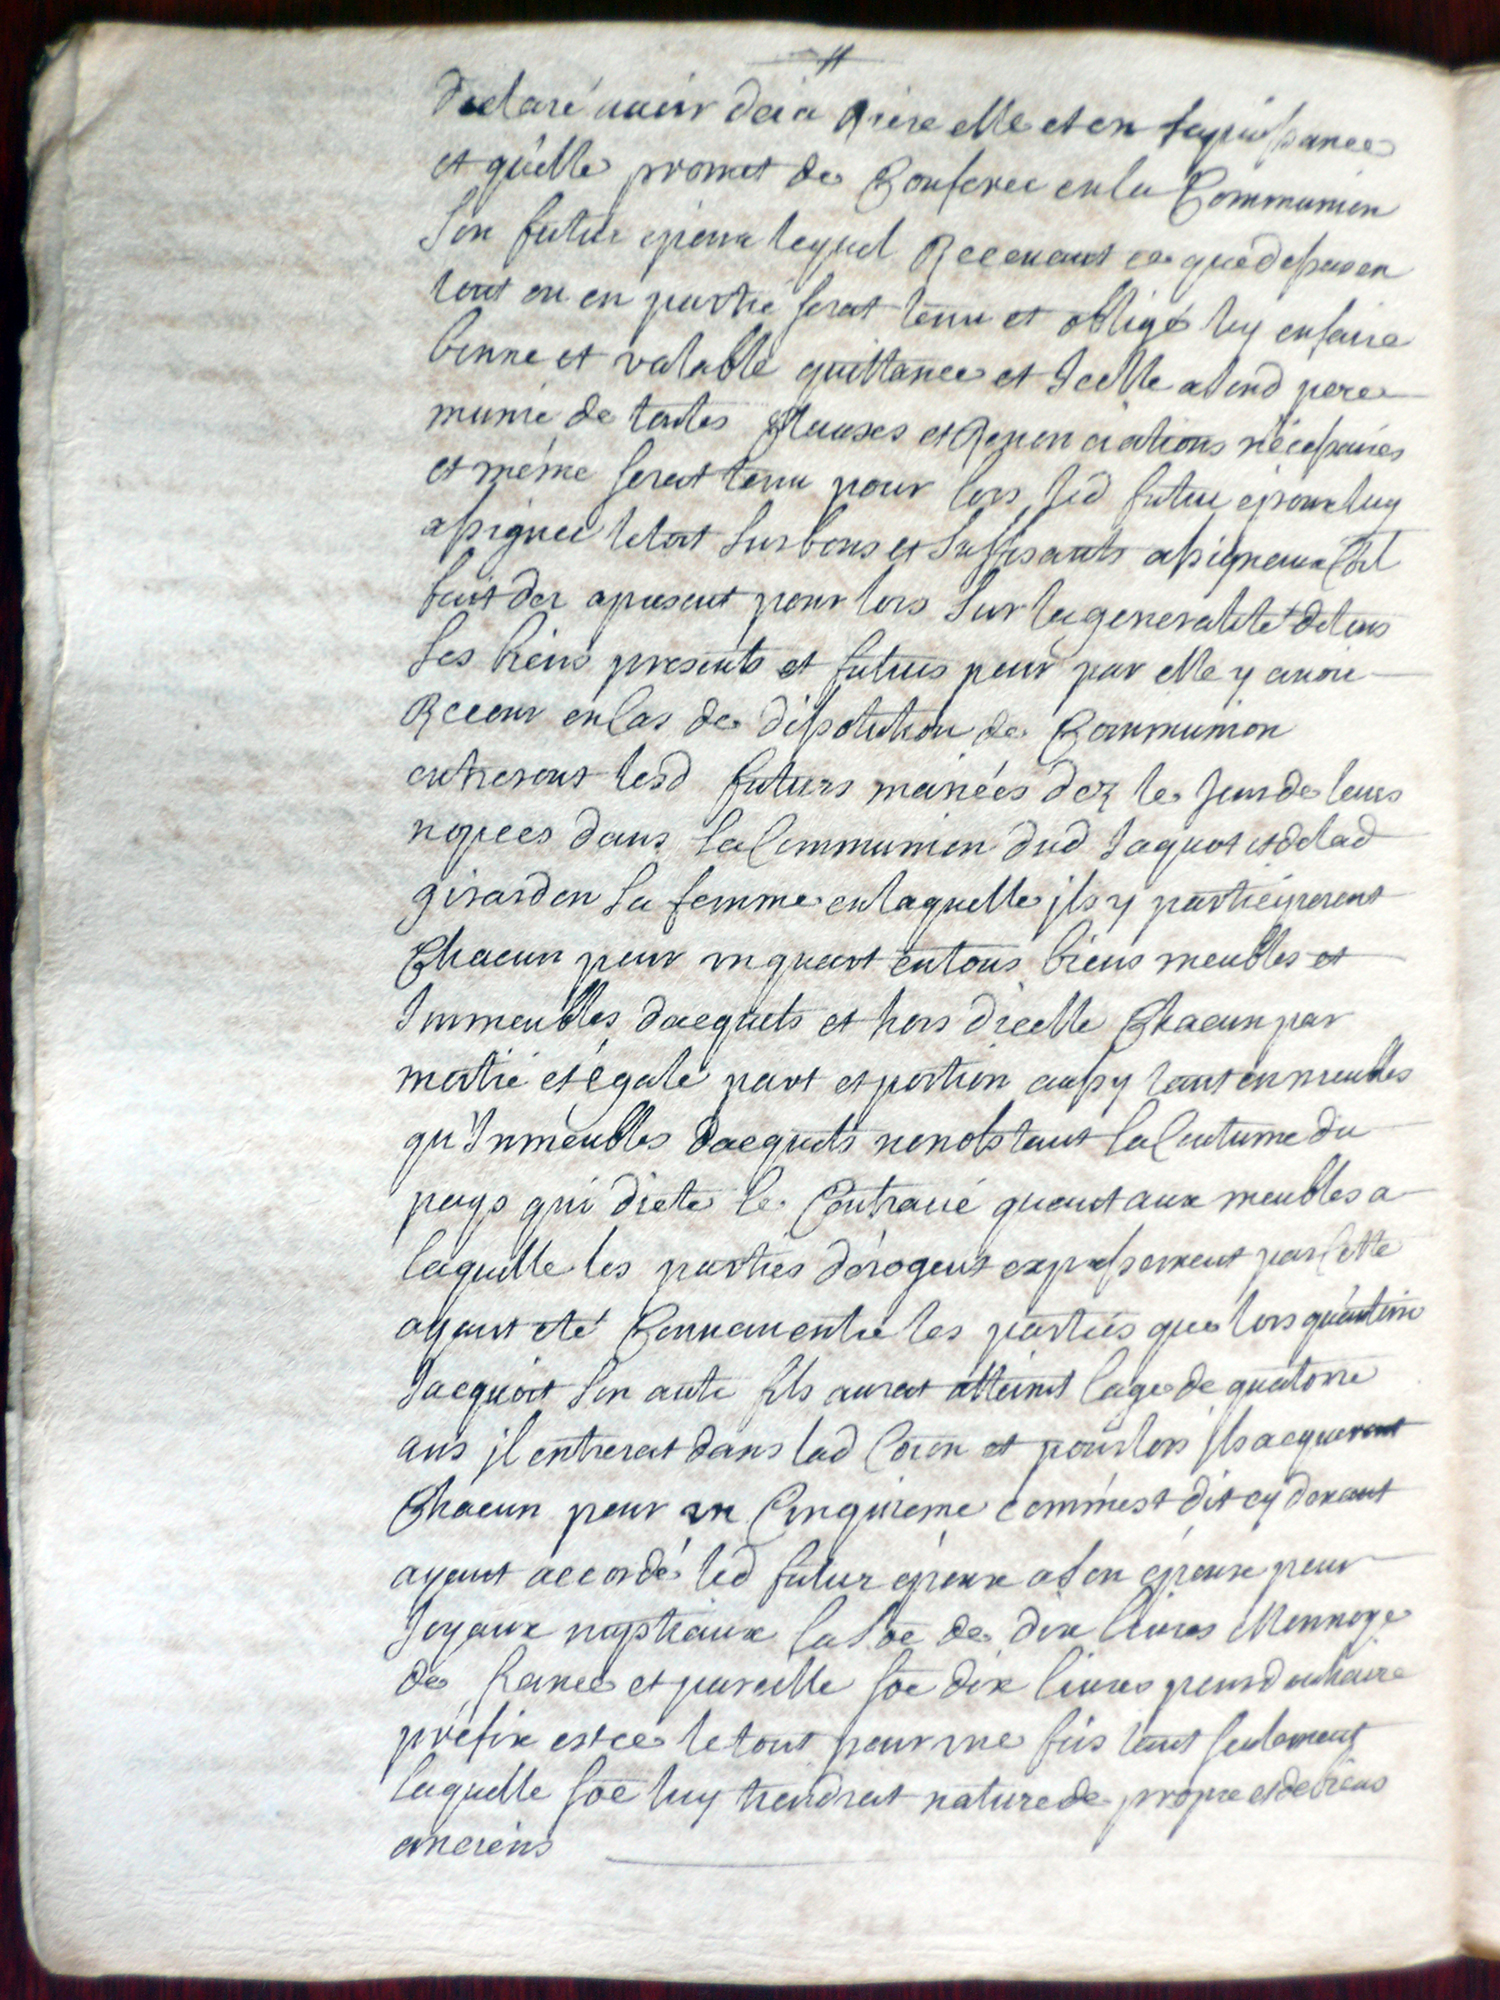 declaré avoir deja Riere elle et en sa puissance
et quelle promet de Conferer en la Communion
Son futur epoux lequel Recevant ce que dessus en
tout ou en partie serat tenu et obligé luy en faire
bonne et valable quittance et Icelle a son d pere
munie de toutes Clauses et Renonciations nécessaires
et même serat tenu pour lors led futur epoux luy
assigner le tout Sur bons et Suffisants assignaux Cõe il
fait dez apresent pour lors Sur la generalité de tous
Ses biens presents et futurs pour par elle y avoir
Recour en Cas de dissolution de Communion
entreront lesd futurs mariées dez le Jour de leurs
nopces dans la Communion dud Jaquot et de lad
girardon Sa femme en laquelle jls y participeront
Chacun pour un quart en tous biens meubles et
Immeubles dacquets et hors dicelle Chacun par
moitié et égale part et portion aussy tant en meubles
qu'Immeubles dacquets nonobstant la Coutume du
pays qui dicte le Contraire quant aux meubles a
laquelle les parties dérogent expressement par Cette
ayant eté Convenu entre les parties que lors qu'antoine
Jacquot Son autre fils aurat atteint lage de quatorze
ans jl entrerat dans lad Coïon et pour lors jls acqueront
Chacun pour un Cinquieme comme est dit cy devant
ayant accordé led futur epoux a Son epouse pour
Joyaux nuptiaux la Sõe de dix livres Monnoye
de france et pareille sõe dix livres pour douhaire
préfix et ce le tout pour une fois tant seulement
laquelle sõe luy tiendrat nature de propre et de biens
anciens